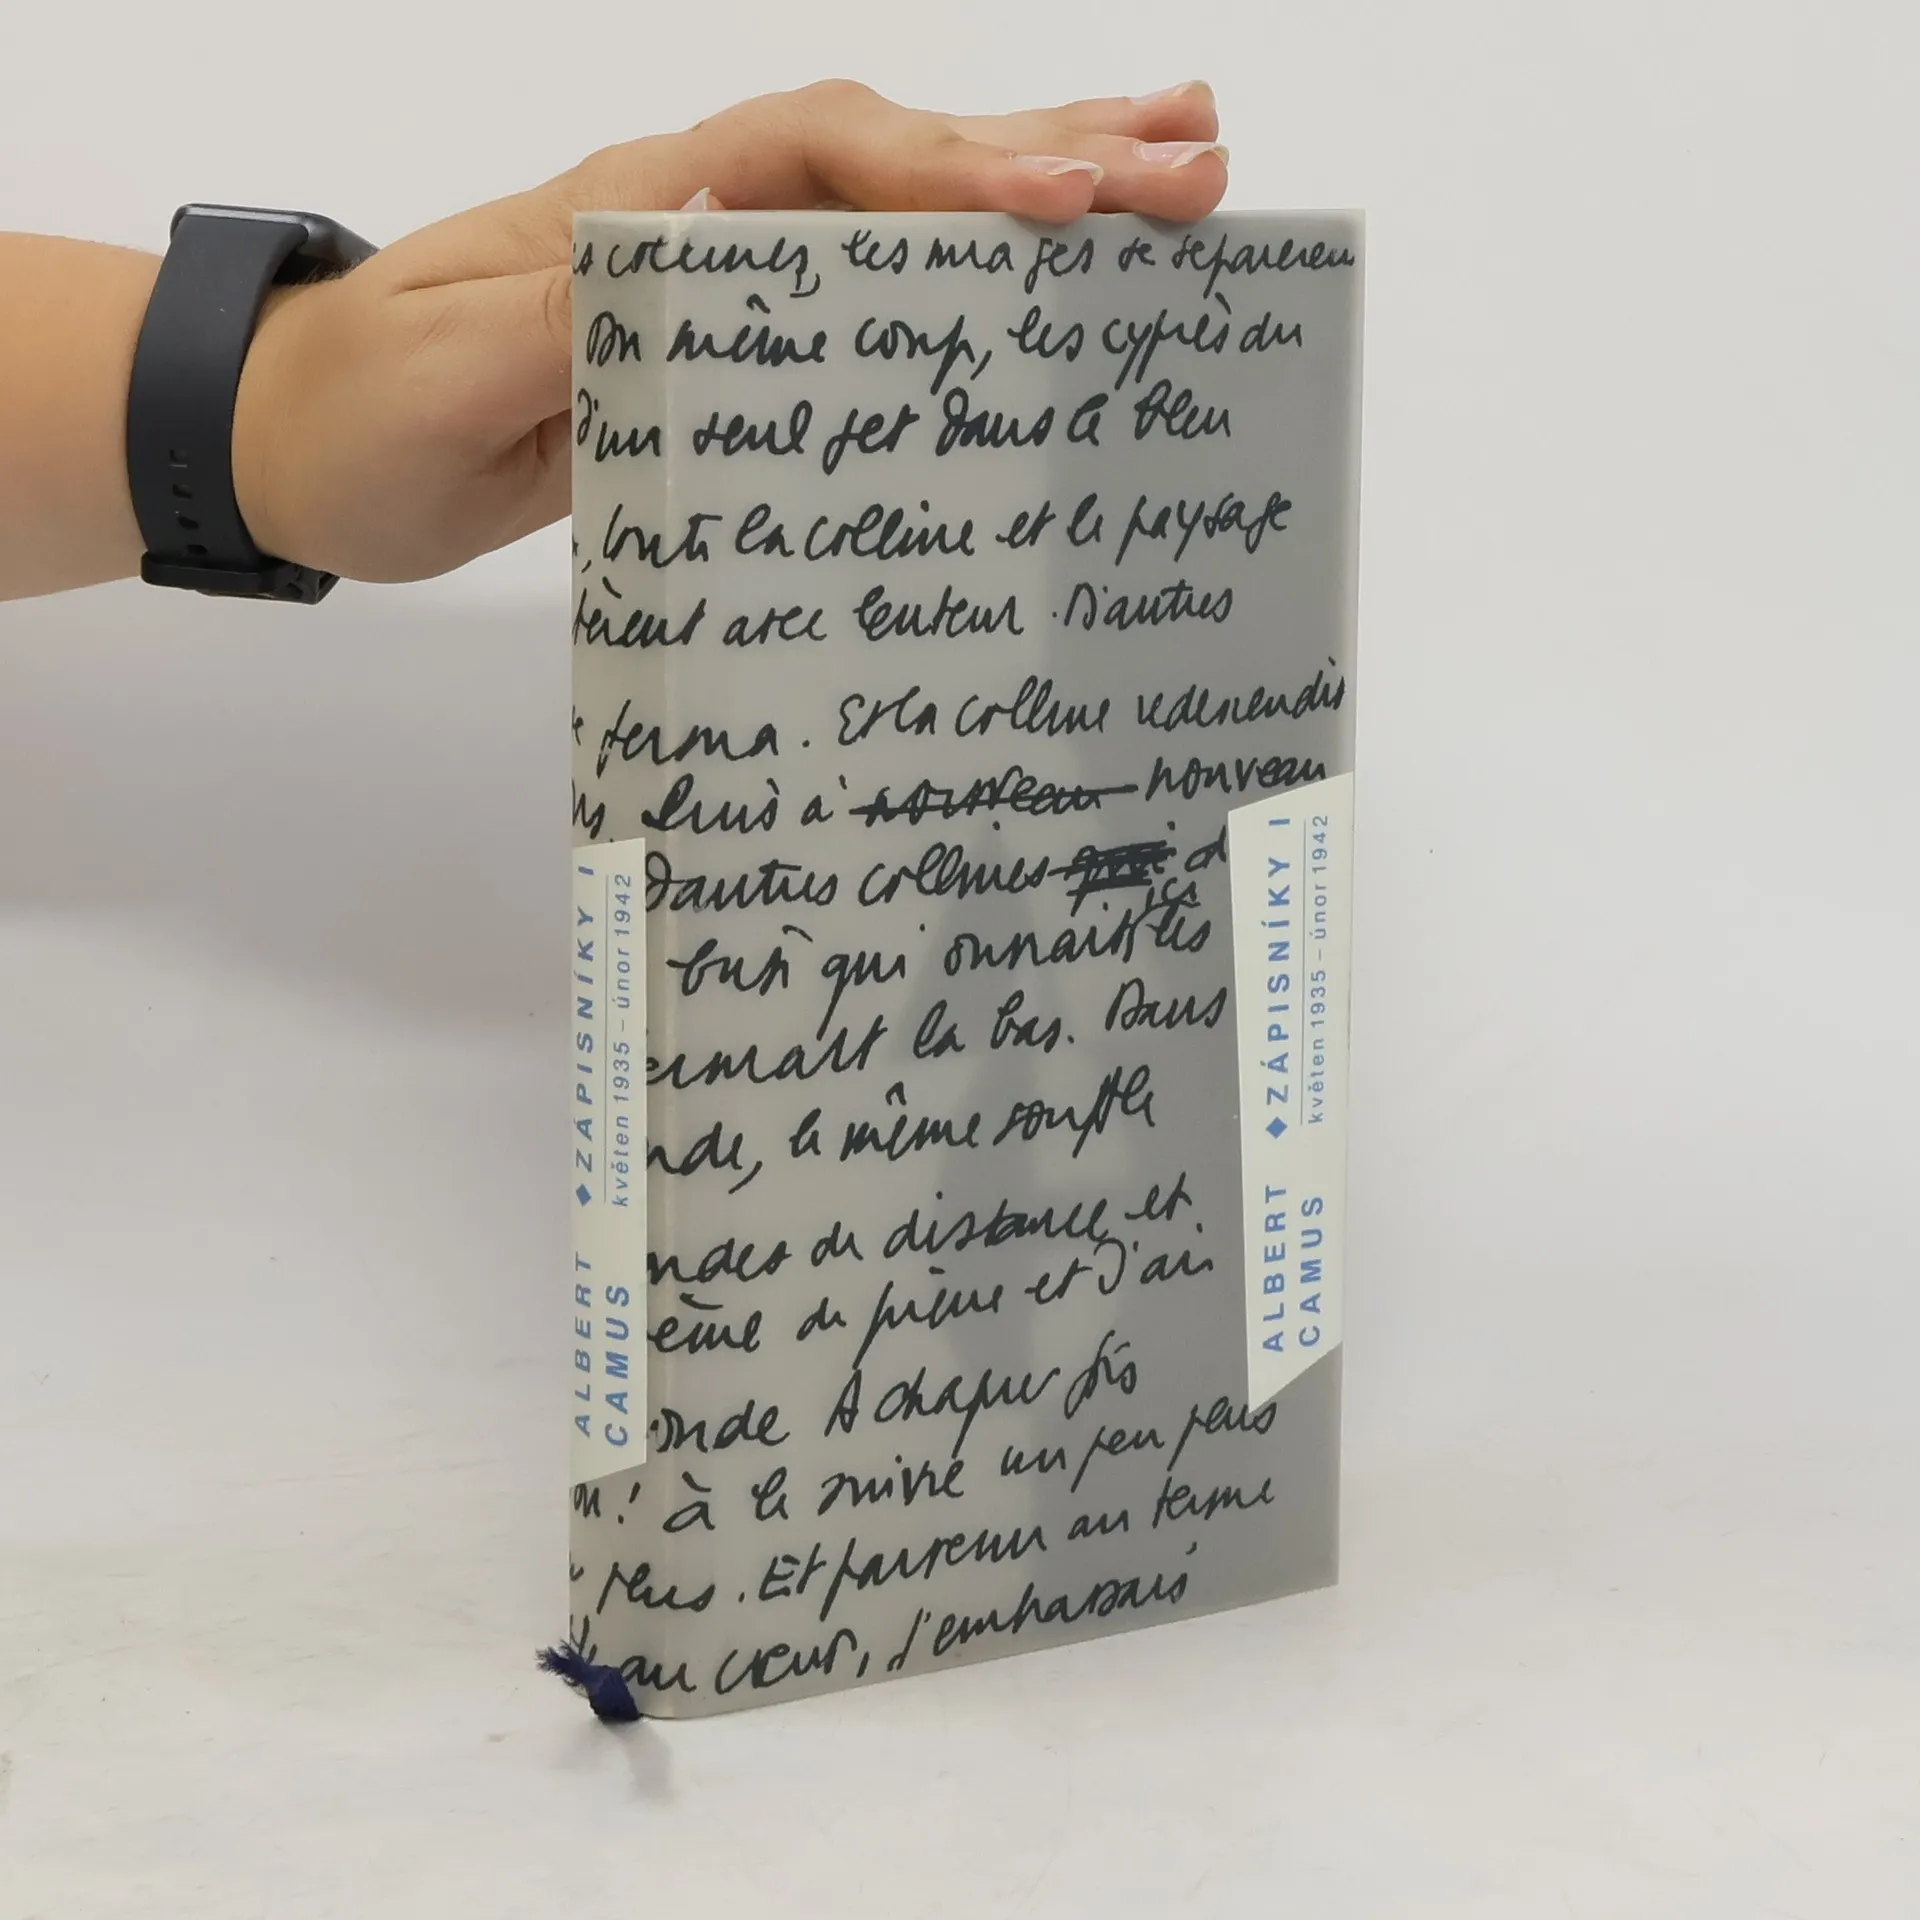 les nuages se séparèrent
Du même coup, les cyprès du
d'un seul jet dans le bleu
toute la colline et le paysage
avec lenteur. D'autres
ferma. Et la colline redescendit
Puis à nouveau nouveau
D'autres collines
ici
qui les
là bas. Dans
le même souffle
de distance et
de pierre et d'air
A chaque fois
! à le suivre un peu plus
plus. Et parvenu au terme
au cœur, j'embrassais
ALBERT CAMUS ◆ ZÁPISNÍKY I
květen 1935 – únor 1942
ALBERT CAMUS ◆ ZÁPISNÍKY I
květen 1935 – únor 1942